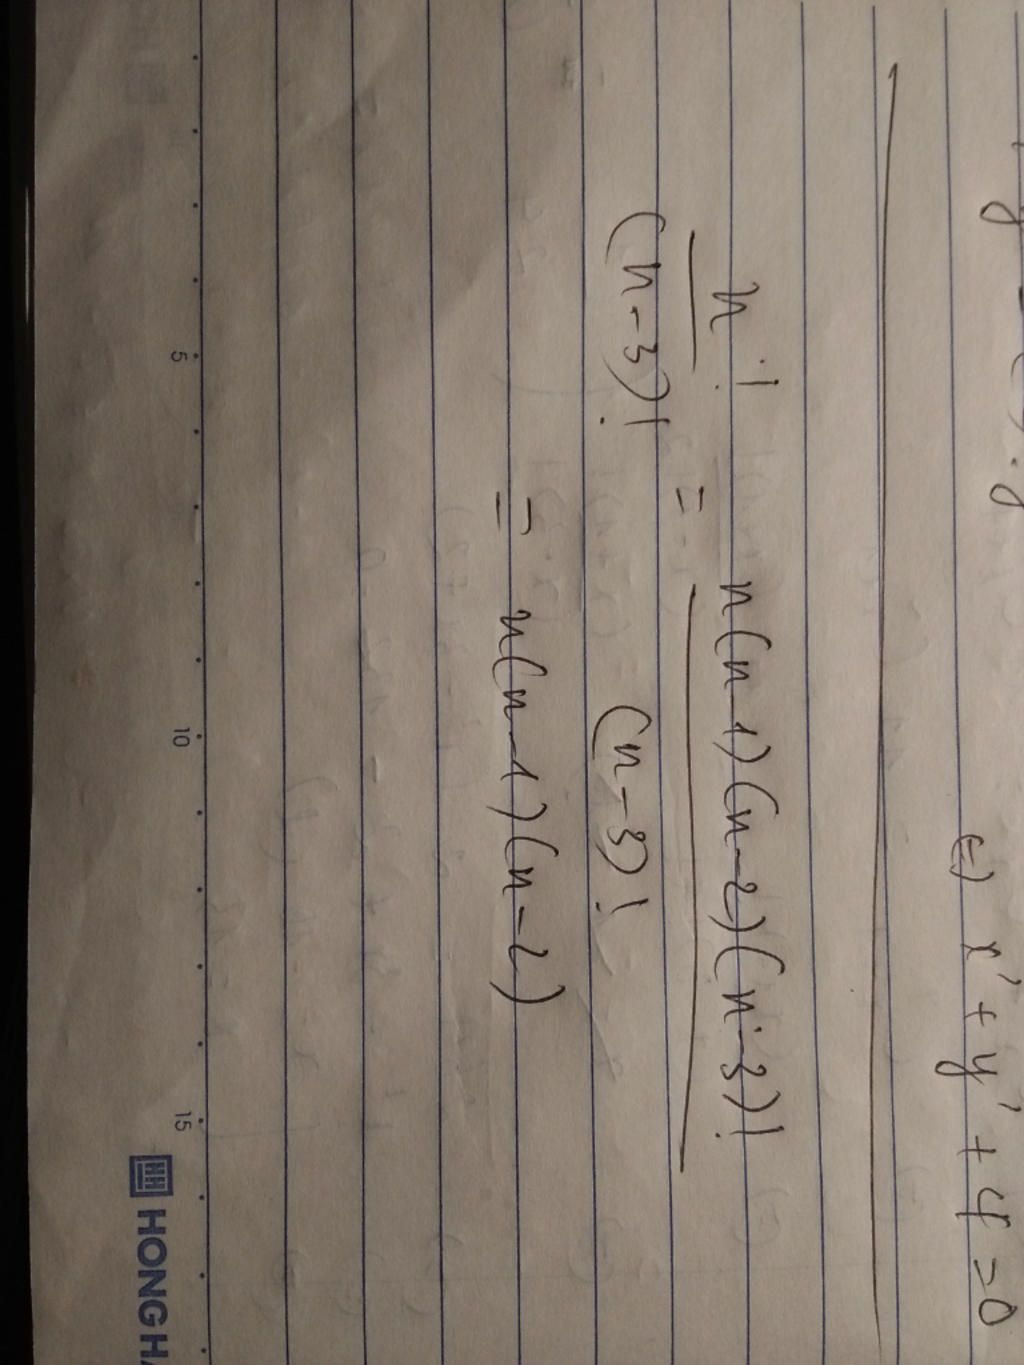 (=) x' + y' + 4 = 0
n! / (n-3)! = n(n-1)(n-2)(n-3)! / (n-3)!
= n(n-1)(n-2)
5 10 15
HONG HA